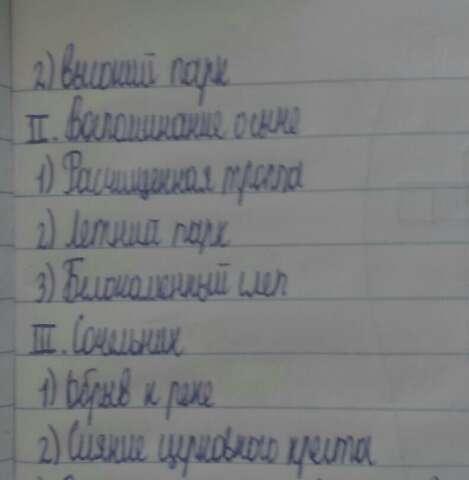 2) Высокий парк
II. Воспоминание о сыне
1) Расчищенная тропа
2) Летний парк
3) Белокаменный слеп
III. Сочельник
1) Обрыв к реке
2) Сияние церковного креста